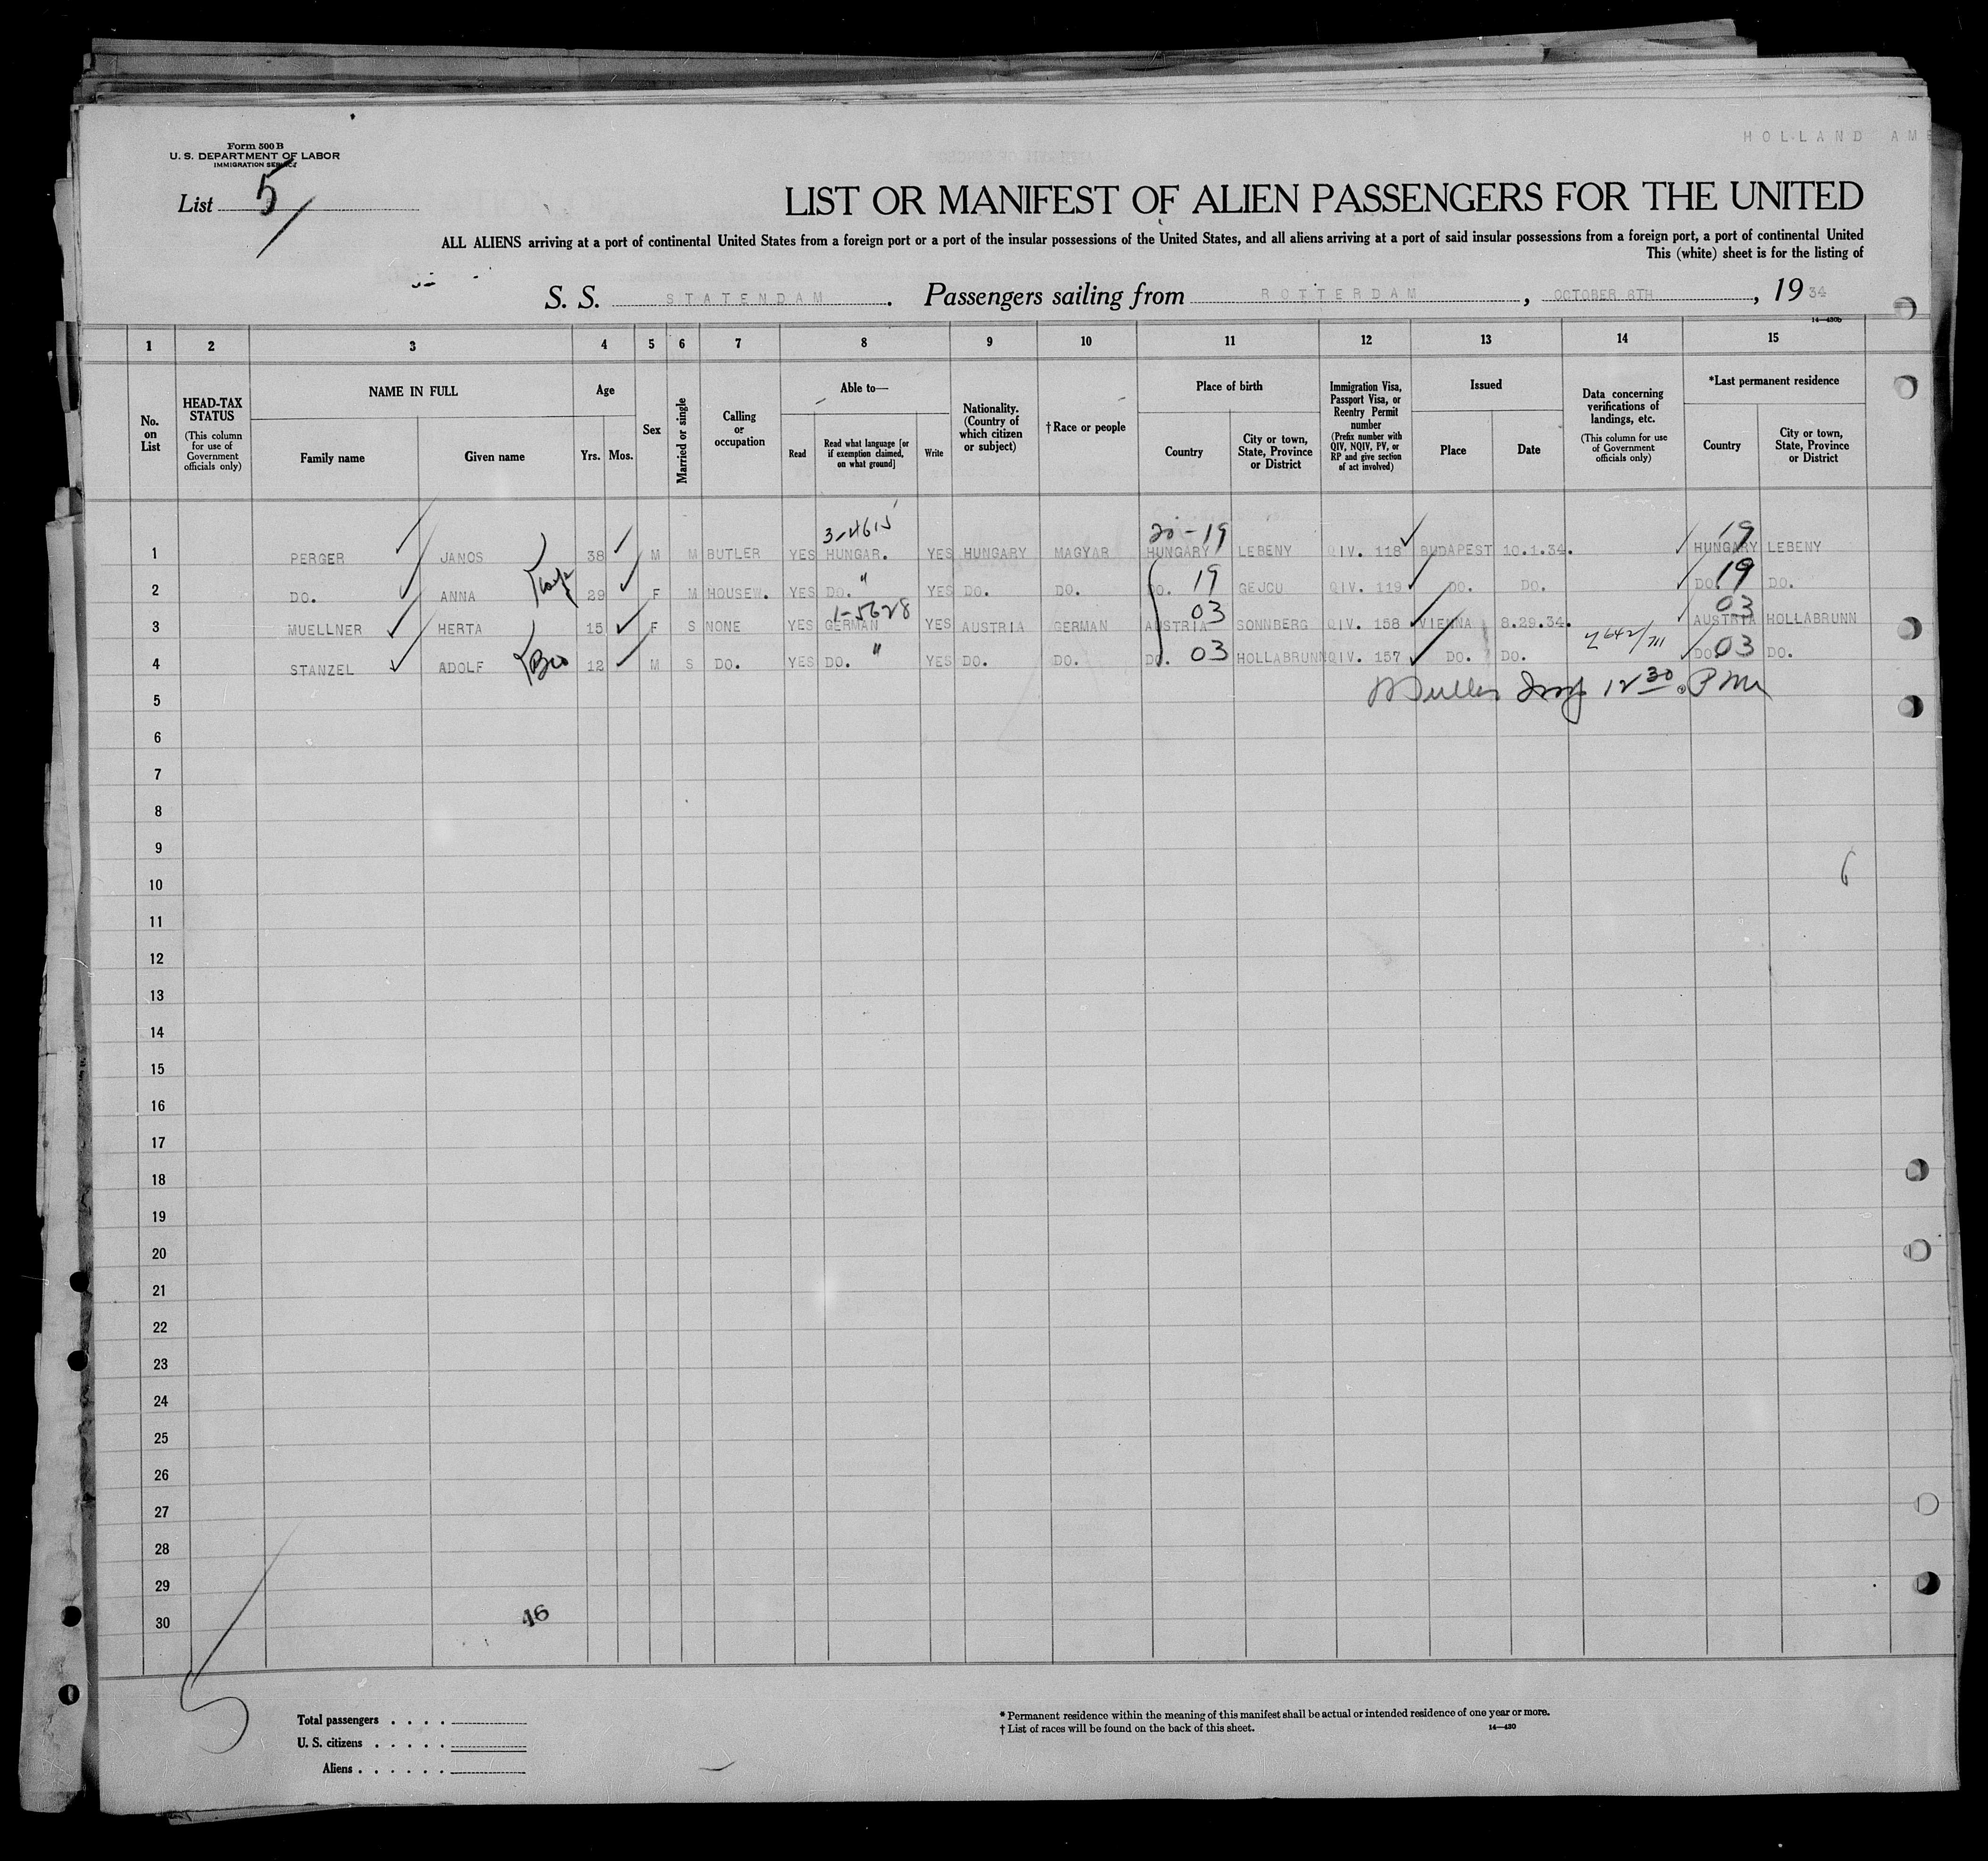 HOLLAND AME
Form 500 B
U. S. DEPARTMENT OF LABOR
IMMIGRATION SERVICE
List 5
LIST OR MANIFEST OF ALIEN PASSENGERS FOR THE UNITED
ALL ALIENS arriving at a port of continental United States from a foreign port or a port of the insular possessions of the United States, and all aliens arriving at a port of said insular possessions from a foreign port, a port of continental United
This (white) sheet is for the listing of
S. S. STATENDAM. Passengers sailing from ROTTERDAM, OCTOBER 6TH, 1934
14—430b
1 2 3 4 5 6 7 8 9 10 11 12 13 14 15
No. on List
HEAD-TAX STATUS (This column for use of Government officials only)
NAME IN FULL
Family name
Given name
Age
Yrs. Mos.
Sex
Married or single
Calling or occupation
Able to—
Read
Read what language [or if exemption claimed, on what ground]
Write
Nationality. (Country of which citizen or subject)
† Race or people
Place of birth
Country
City or town, State, Province or District
Immigration Visa, Passport Visa, or Reentry Permit number (Prefix number with QIV, NQIV, PV, or RP and give section of act involved)
Issued
Place
Date
Data concerning verifications of landings, etc. (This column for use of Government officials only)
*Last permanent residence
Country
City or town, State, Province or District
3-4615 20-19 19
1 PERGER JANOS 38 M M BUTLER YES HUNGAR. YES HUNGARY MAGYAR HUNGARY LEBENY QIV. 118 BUDAPEST 10.1.34. HUNGARY LEBENY
2 DO. ANNA wife 29 F M HOUSEW. YES DO. " YES DO. DO. DO. 19 GEJCU QIV. 119 DO. DO. DO. 19 DO.
1-5628 03 03
3 MUELLNER HERTA 15 F S NONE YES GERMAN YES AUSTRIA GERMAN AUSTRIA SONNBERG QIV. 158 VIENNA 8.29.34. AUSTRIA HOLLABRUNN
4 STANZEL ADOLF Bro 12 M S DO. YES DO. " YES DO. DO. DO. 03 HOLLABRUNN QIV. 157 DO. DO. 2642/711 DO. 03 DO.
5 12 30 PM
6
7
8
9
10 6
11
12
13
14
15
16
17
18
19
20
21
22
23
24
25
26
27
28
29
30 46
5
Total passengers . . . .
U. S. citizens . . . . .
Aliens . . . . . .
* Permanent residence within the meaning of this manifest shall be actual or intended residence of one year or more.
† List of races will be found on the back of this sheet. 14—430